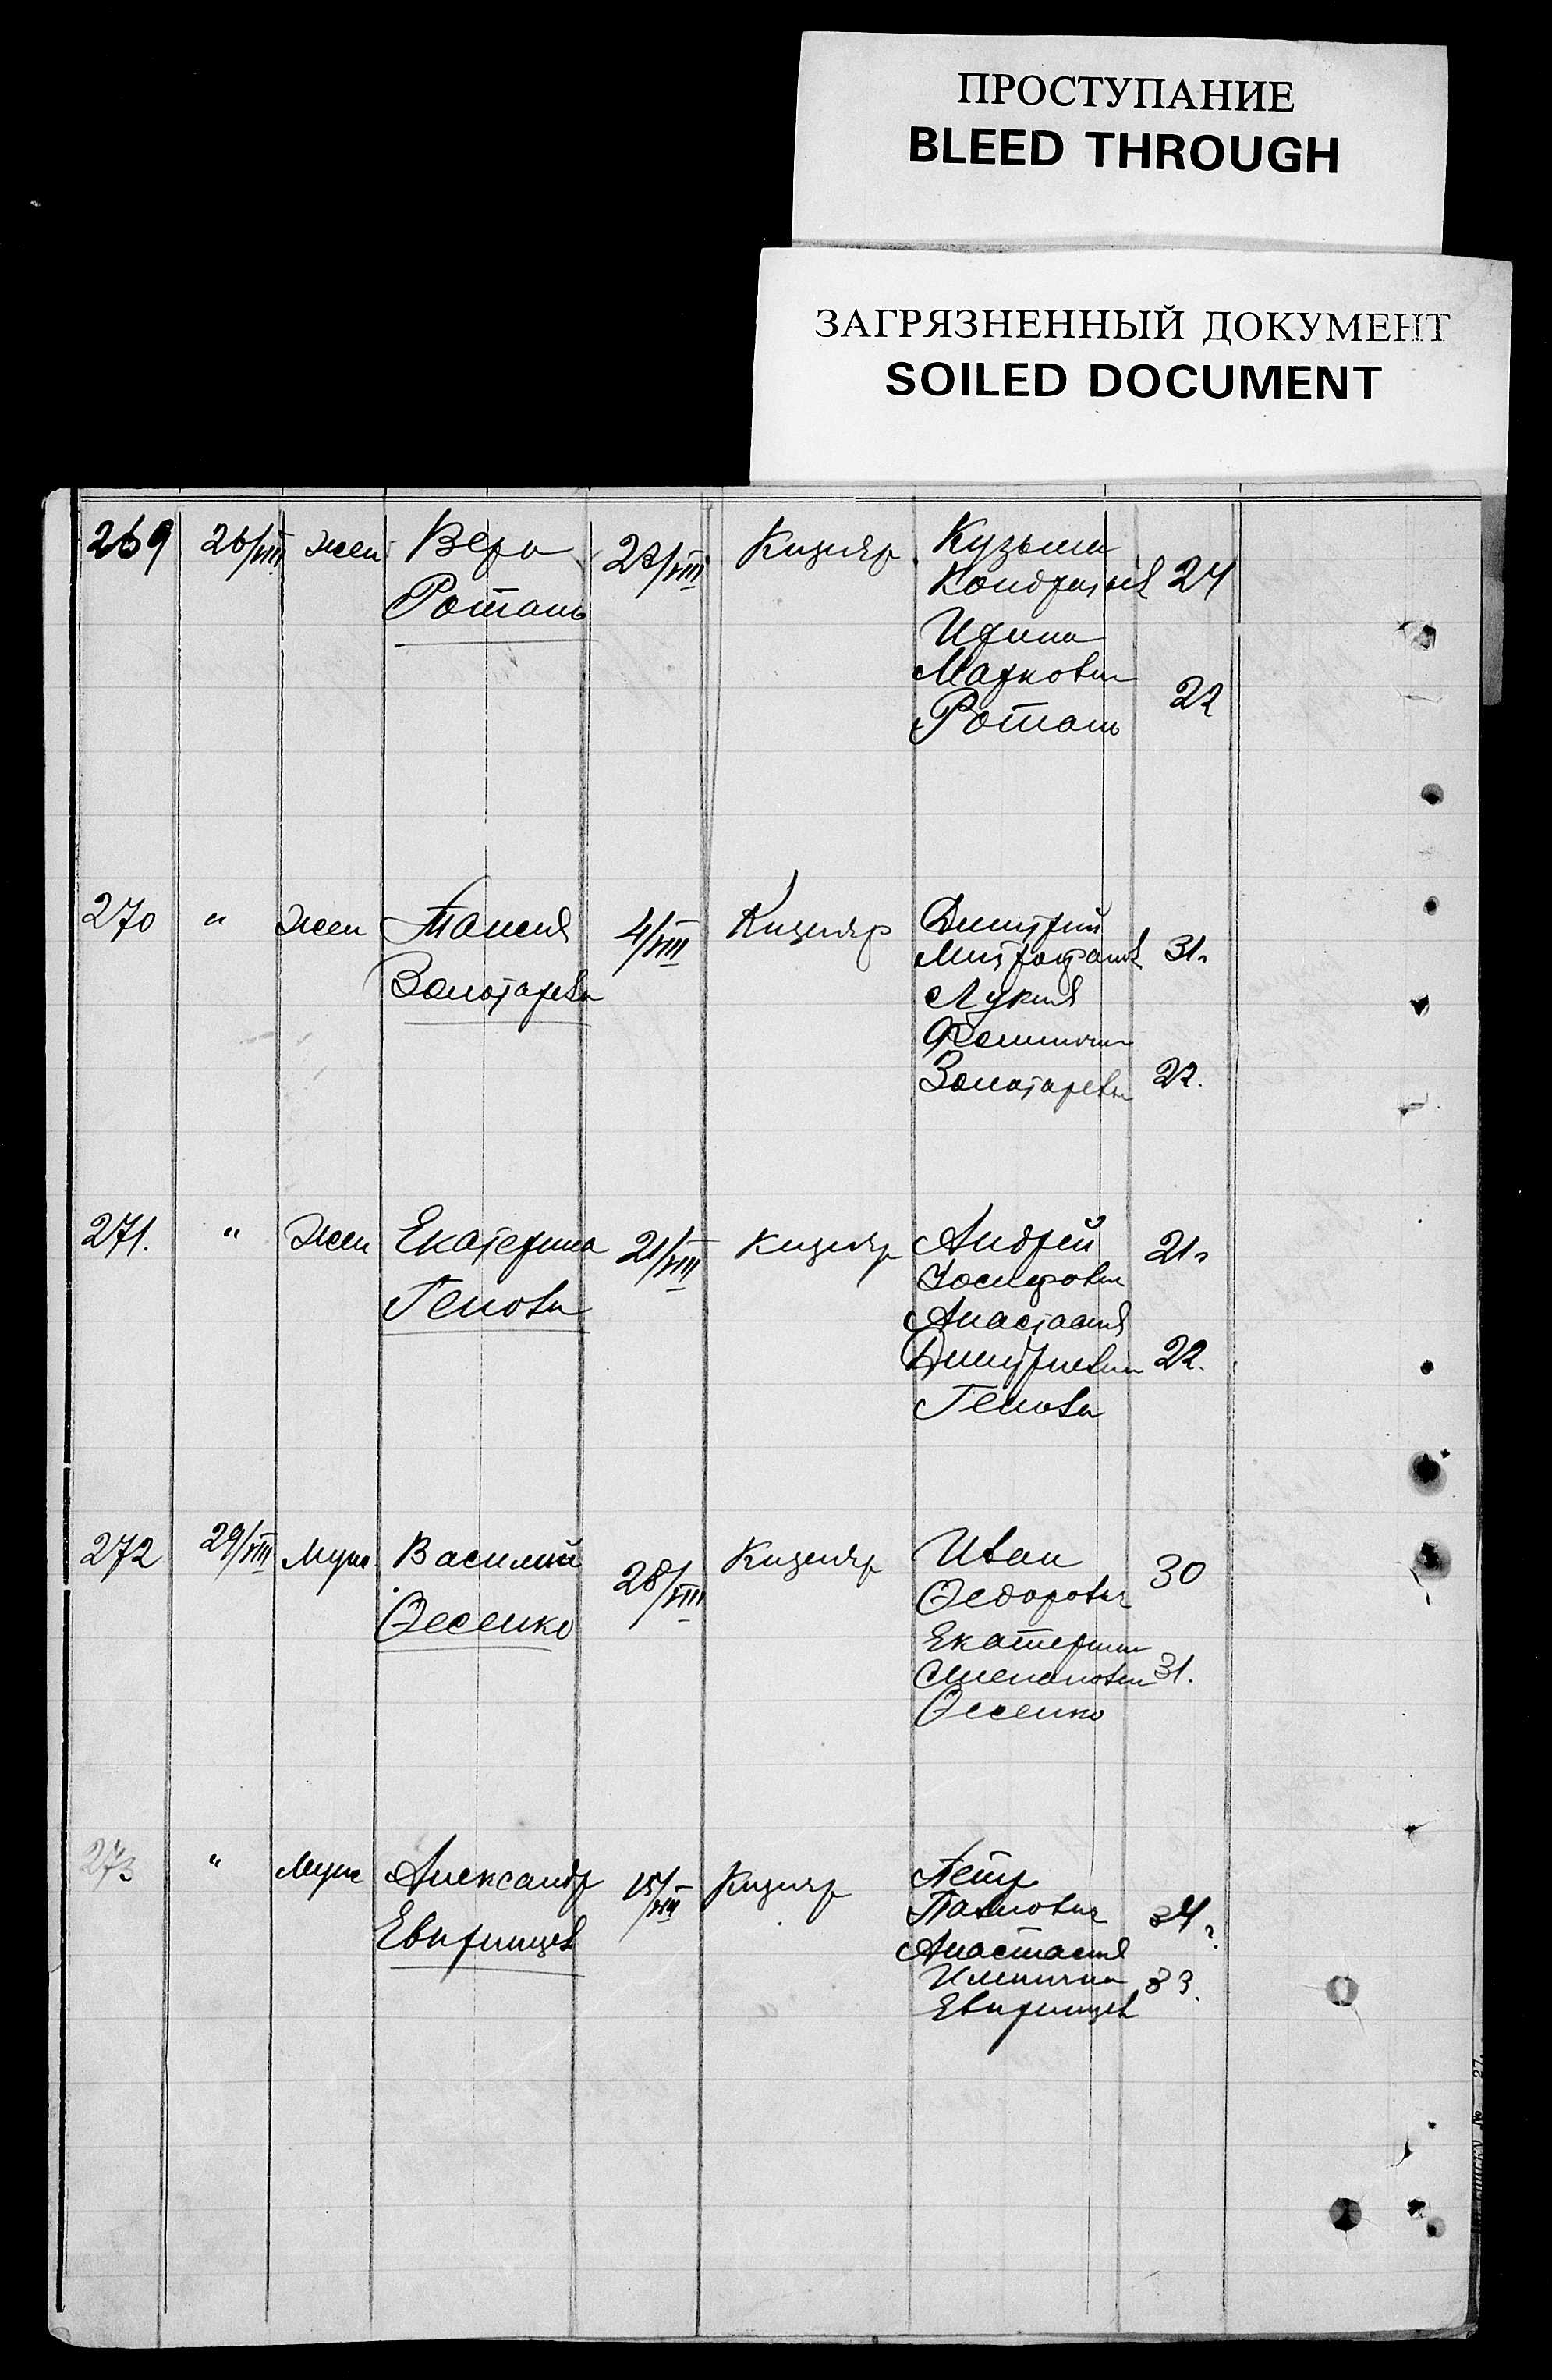 ПРОСТУПАНИЕ
BLEED THROUGH
ЗАГРЯЗНЕННЫЙ ДОКУМЕНТ
SOILED DOCUMENT
269 26/VIII жен Вера 23/VIII Кизляр Кузьма
Ротань Кондратьев 24
Ирина
Марковна 22
Ротань
270 " жен Таисия 4/VIII Кизляр Димитрий
Золотарева Митрофанов 31.
Лукия
Фоминична
Золотаревы 22.
271. " жен Екатерина 21/VIII Кизляр Андрей 21.
Генова Иосифович
Анастасия
Димитриевна 22.
Геновы
272 29/VIII Муж. Василий 28/VIII Кизляр Иван 30
Фесенко Федорович
Екатерина
Степановна 31.
Фесенко
273 " Муж Александр 15/VIII Кизляр Петр
Павлович 34
Анастасия
Ильинична 33.